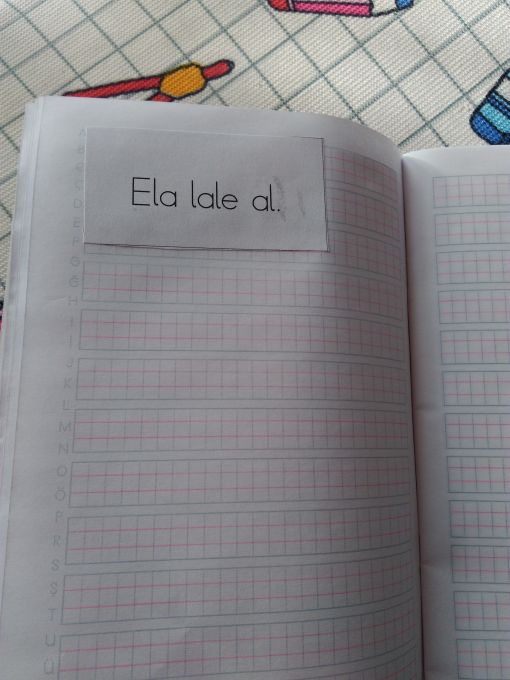 Ela lale al.
A
B
C
Ç
D
E
F
G
Ğ
H
I
İ
J
K
L
M
N
O
Ö
P
R
S
Ş
T
U
Ü